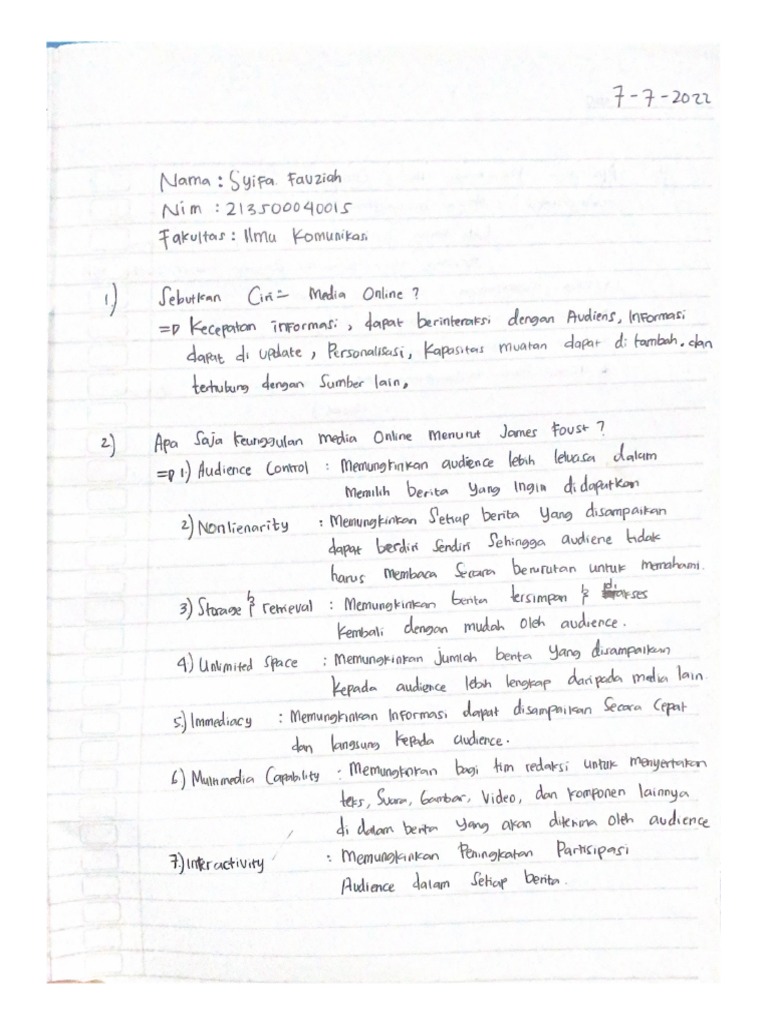 7-7-2022
Nama : Syifa Fauziah
Nim : 213500040015
Fakultas : Ilmu Komunikasi
1) Sebutkan Ciri = Media Online ?
=D Kecepatan informasi, dapat berinteraksi dengan Audiens, Informasi
dapat di update, Personalisasi, Kapasitas muatan dapat di tambah. dan
terhubung dengan Sumber lain,
2) Apa Saja Keunggulan media Online Menurut James Foust ?
=D 1.) Audience Control : Memungkinkan audience lebih leluasa dalam
memilih berita yang ingin didapatkan
2) Nonlienarity : Memungkinkan Setiap berita yang disampaikan
dapat berdiri sendiri Sehingga audiene tidak
harus membaca Secara berurutan untuk memahami.
3) Storage & retrieval : Memungkinkan berita tersimpan & diakses
kembali dengan mudah oleh audience.
4) Unlimited Space : Memungkinkan jumlah berita yang disampaikan
kepada audience lebih lengkap daripada media lain.
5) Immediacy : Memungkinkan Informasi dapat disampaikan Secara Cepat
dan langsung kepada audience.
6) Multimedia Capability : Memungkinkan bagi tim redaksi untuk menyertakan
teks, Suara, Gambar, Video, dan komponen lainnya
di dalam berita yang akan diterima oleh audience
7) Interactivity : Memungkinkan Peningkatan Partisipasi
Audience dalam Setiap berita.